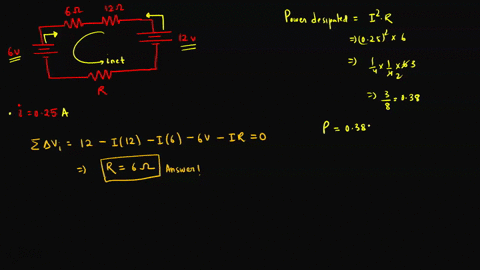 6Ω 12Ω
6V
12V
inet
R
• i = 0.25 A
ΣΔV₁ = 12 - I(12) - I(6) - 6V - IR = 0
⇒ R = 6Ω Answer!
Power desipated = I²·R
⇒ (0.25)² × 6
⇒ 1/4 × 1/4 2 × 6 3
⇒ 3/8 = 0.38
P = 0.38